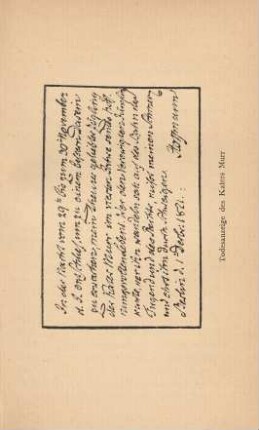 In der Nacht vom 29t bis zum 30t November
d. J. entschlief, um zu einem bessern Dasein
zu erwachen, mein theurer geliebter Zögling
der Kater Murr im vierten Jahre seines hoff-
nungsvollen Lebens. Wer den verewigten Jüngling
kannte, wer ihn wandeln sah auf der Bahn der
Tugend und des Rechts, mißt meinen Schmerz
und ehrt ihn durch Schweigen.
Berlin d. 1 Decbr. 1821. Hoffmann
Todesanzeige des Katers Murr